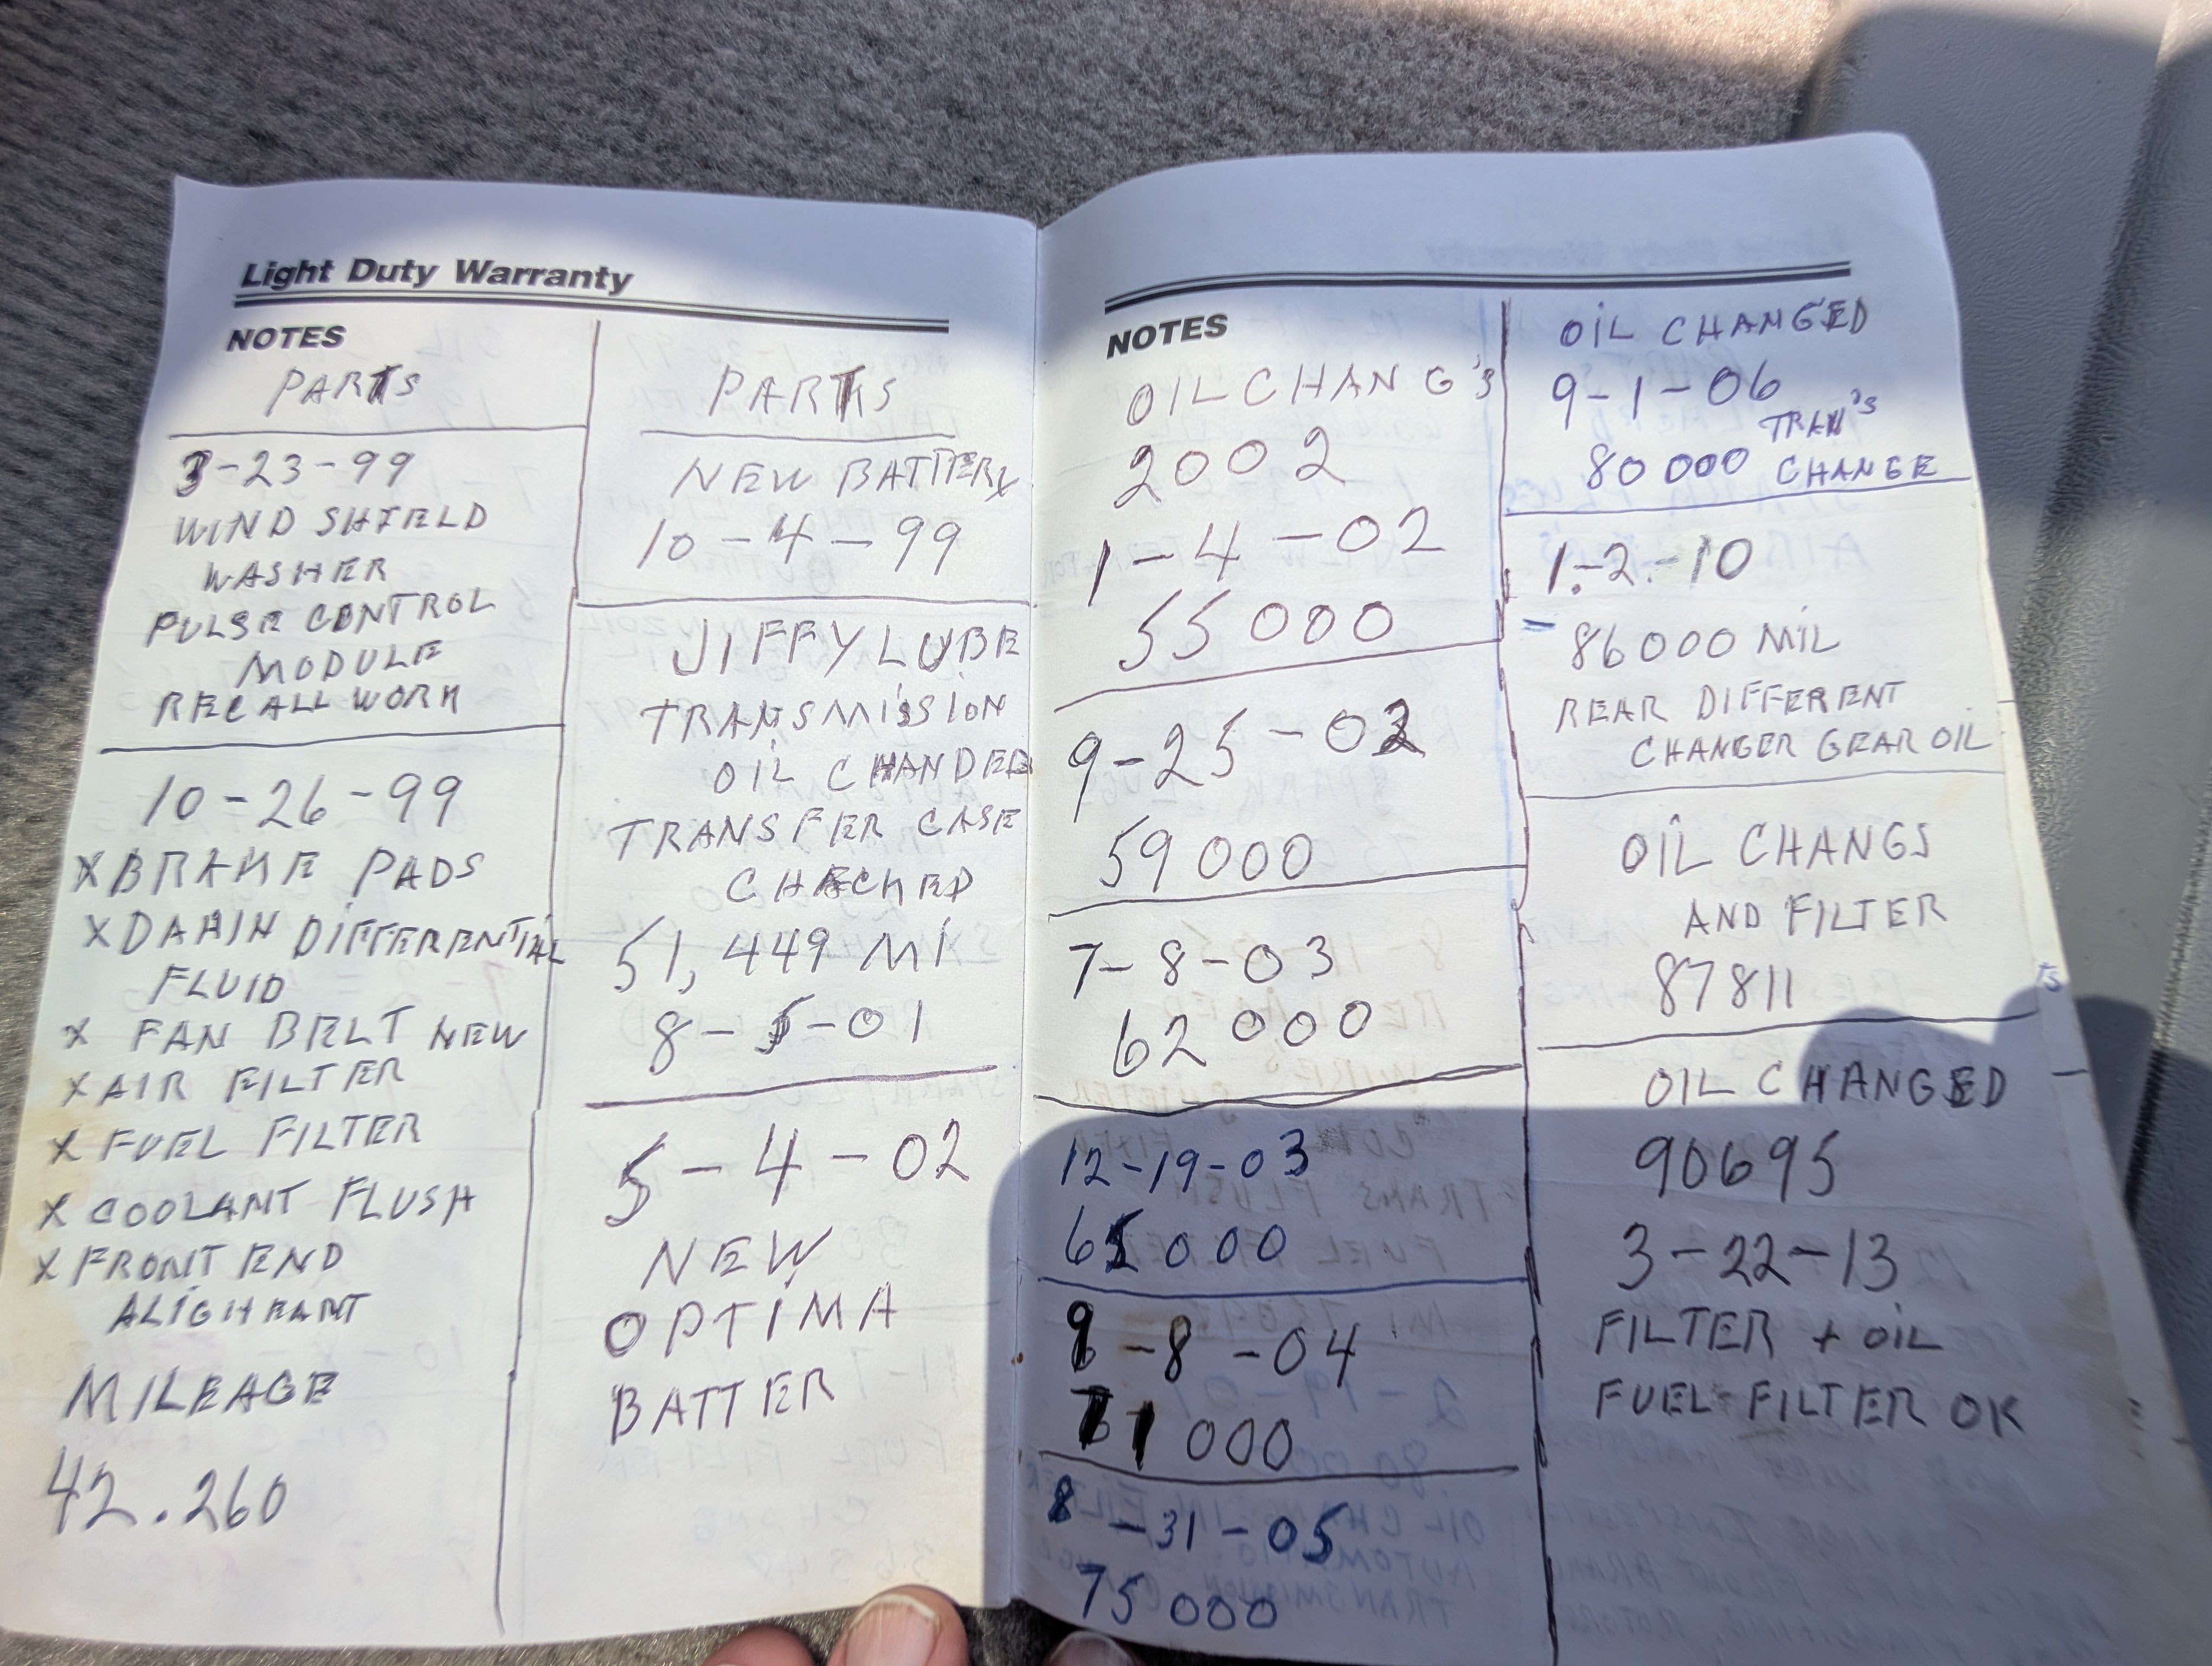 Light Duty Warranty
NOTES
PARTS
3-23-99
WIND SHIELD
WASHER
PULSE CONTROL
MODULE
RECALL WORK
10-26-99
X BRAKE PADS
X DAHIN DIFFERENTIAL
FLUID
X FAN BELT NEW
X AIR FILTER
X FUEL FILTER
X COOLANT FLUSH
X FRONT END
ALIGHEANT
MILEAGE
42.260
PARTS
NEW BATTERY
10-4-99
JIFFY LUBE
TRANSMISSION
OIL CHANDED
TRANSFER CASE
CHECKED
51,449 MI
8-5-01
5-4-02
NEW
OPTIMA
BATTER
NOTES
OIL CHANG'S
2002
1-4-02
55000
9-25-02
59000
7-8-03
62000
12-19-03
65000
9-8-04
71000
8-31-05
75000
OIL CHANGED
9-1-06
TRAN'S
80000 CHANGE
1.-2.-10
- 86000 MIL
REAR DIFFERENT
CHANGER GEAR OIL
OIL CHANGS
AND FILTER
87811
OIL CHANGED
90695
3-22-13
FILTER + OIL
FUEL FILTER OK